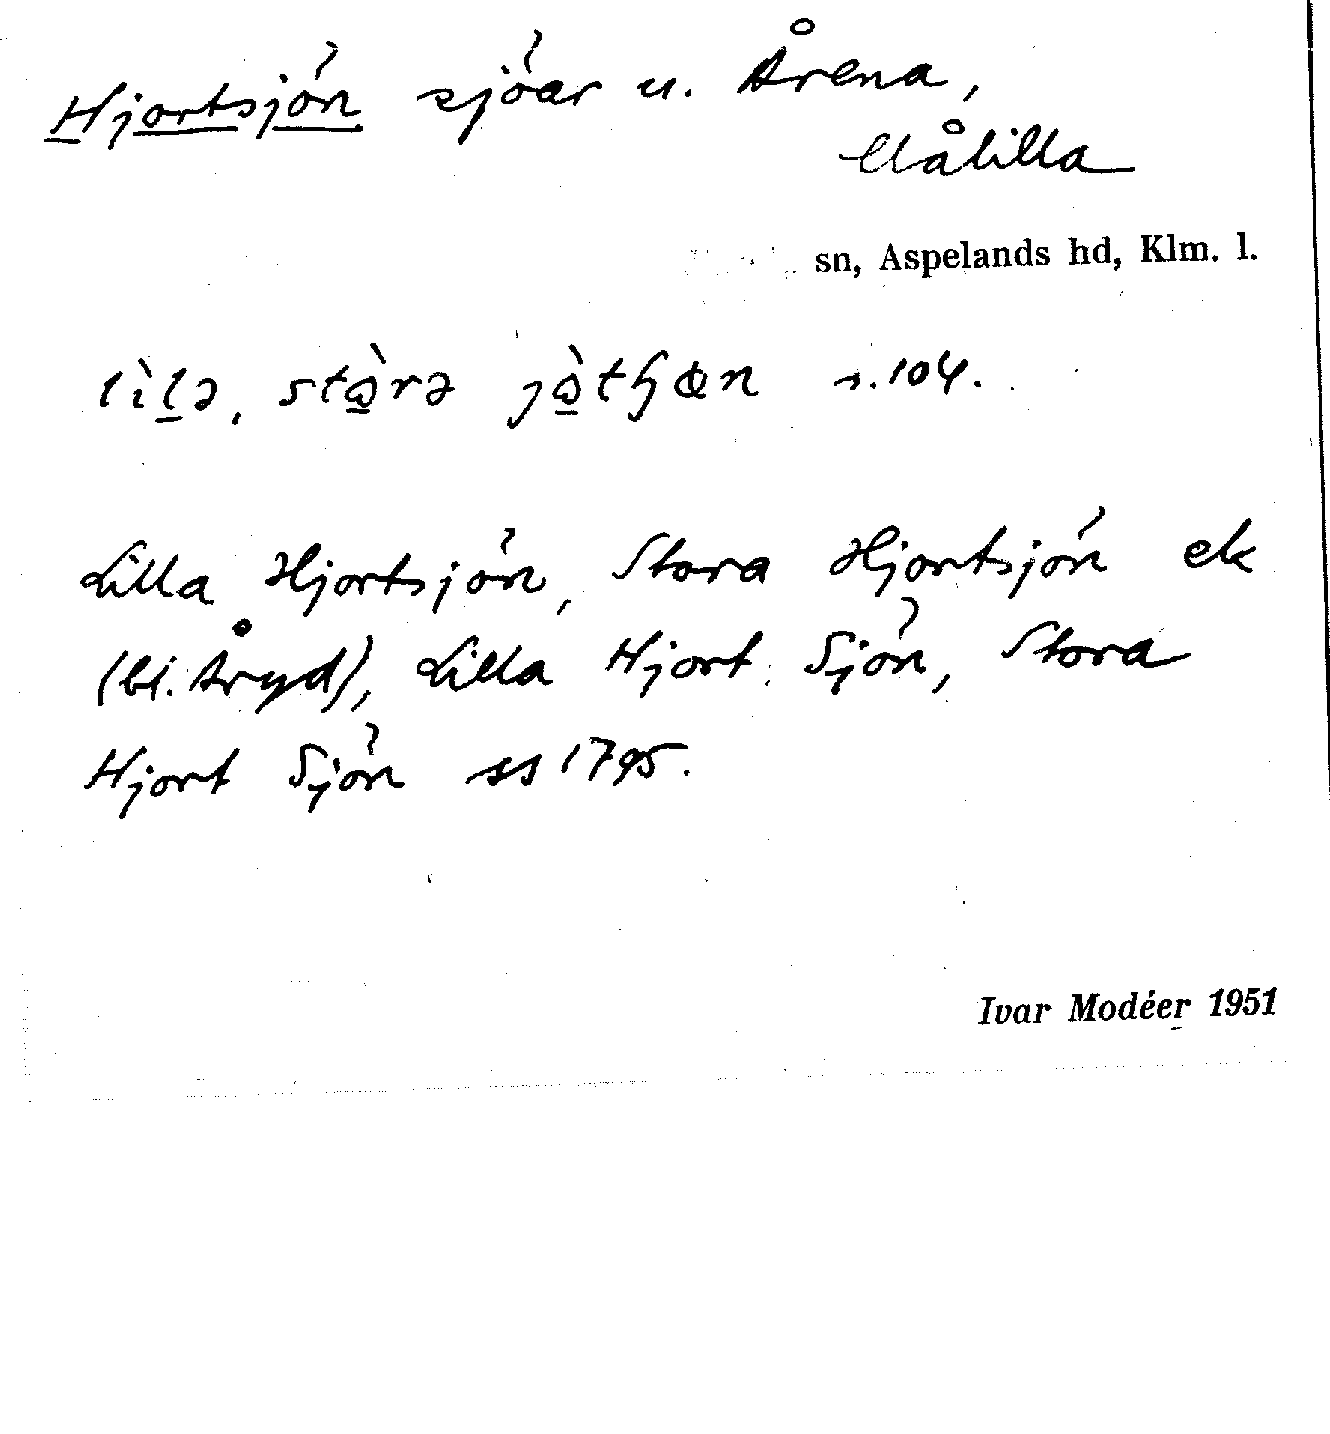 Hjortsjön sjöar u. Årena,
Målilla
sn, Aspelands hd, Klm. l.
s. 104.
Lilla Hjortsjön, Stora Hjortsjön ek
(bl. Åryd), Lilla Hjort Sjön, Stora
Hjort Sjön ss 1795.
Ivar Modéer 1951